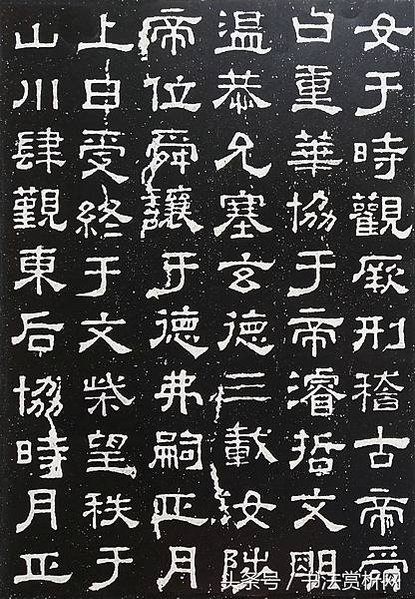 女于時觀厥刑稽古帝舜
曰重華協于帝濬哲文明
温恭允塞玄德三載汝陟
帝位舜讓于德弗嗣正月
上日受終于文柴望秩于
山川肆覲東后協時月正
头条号 / 书法赏析网